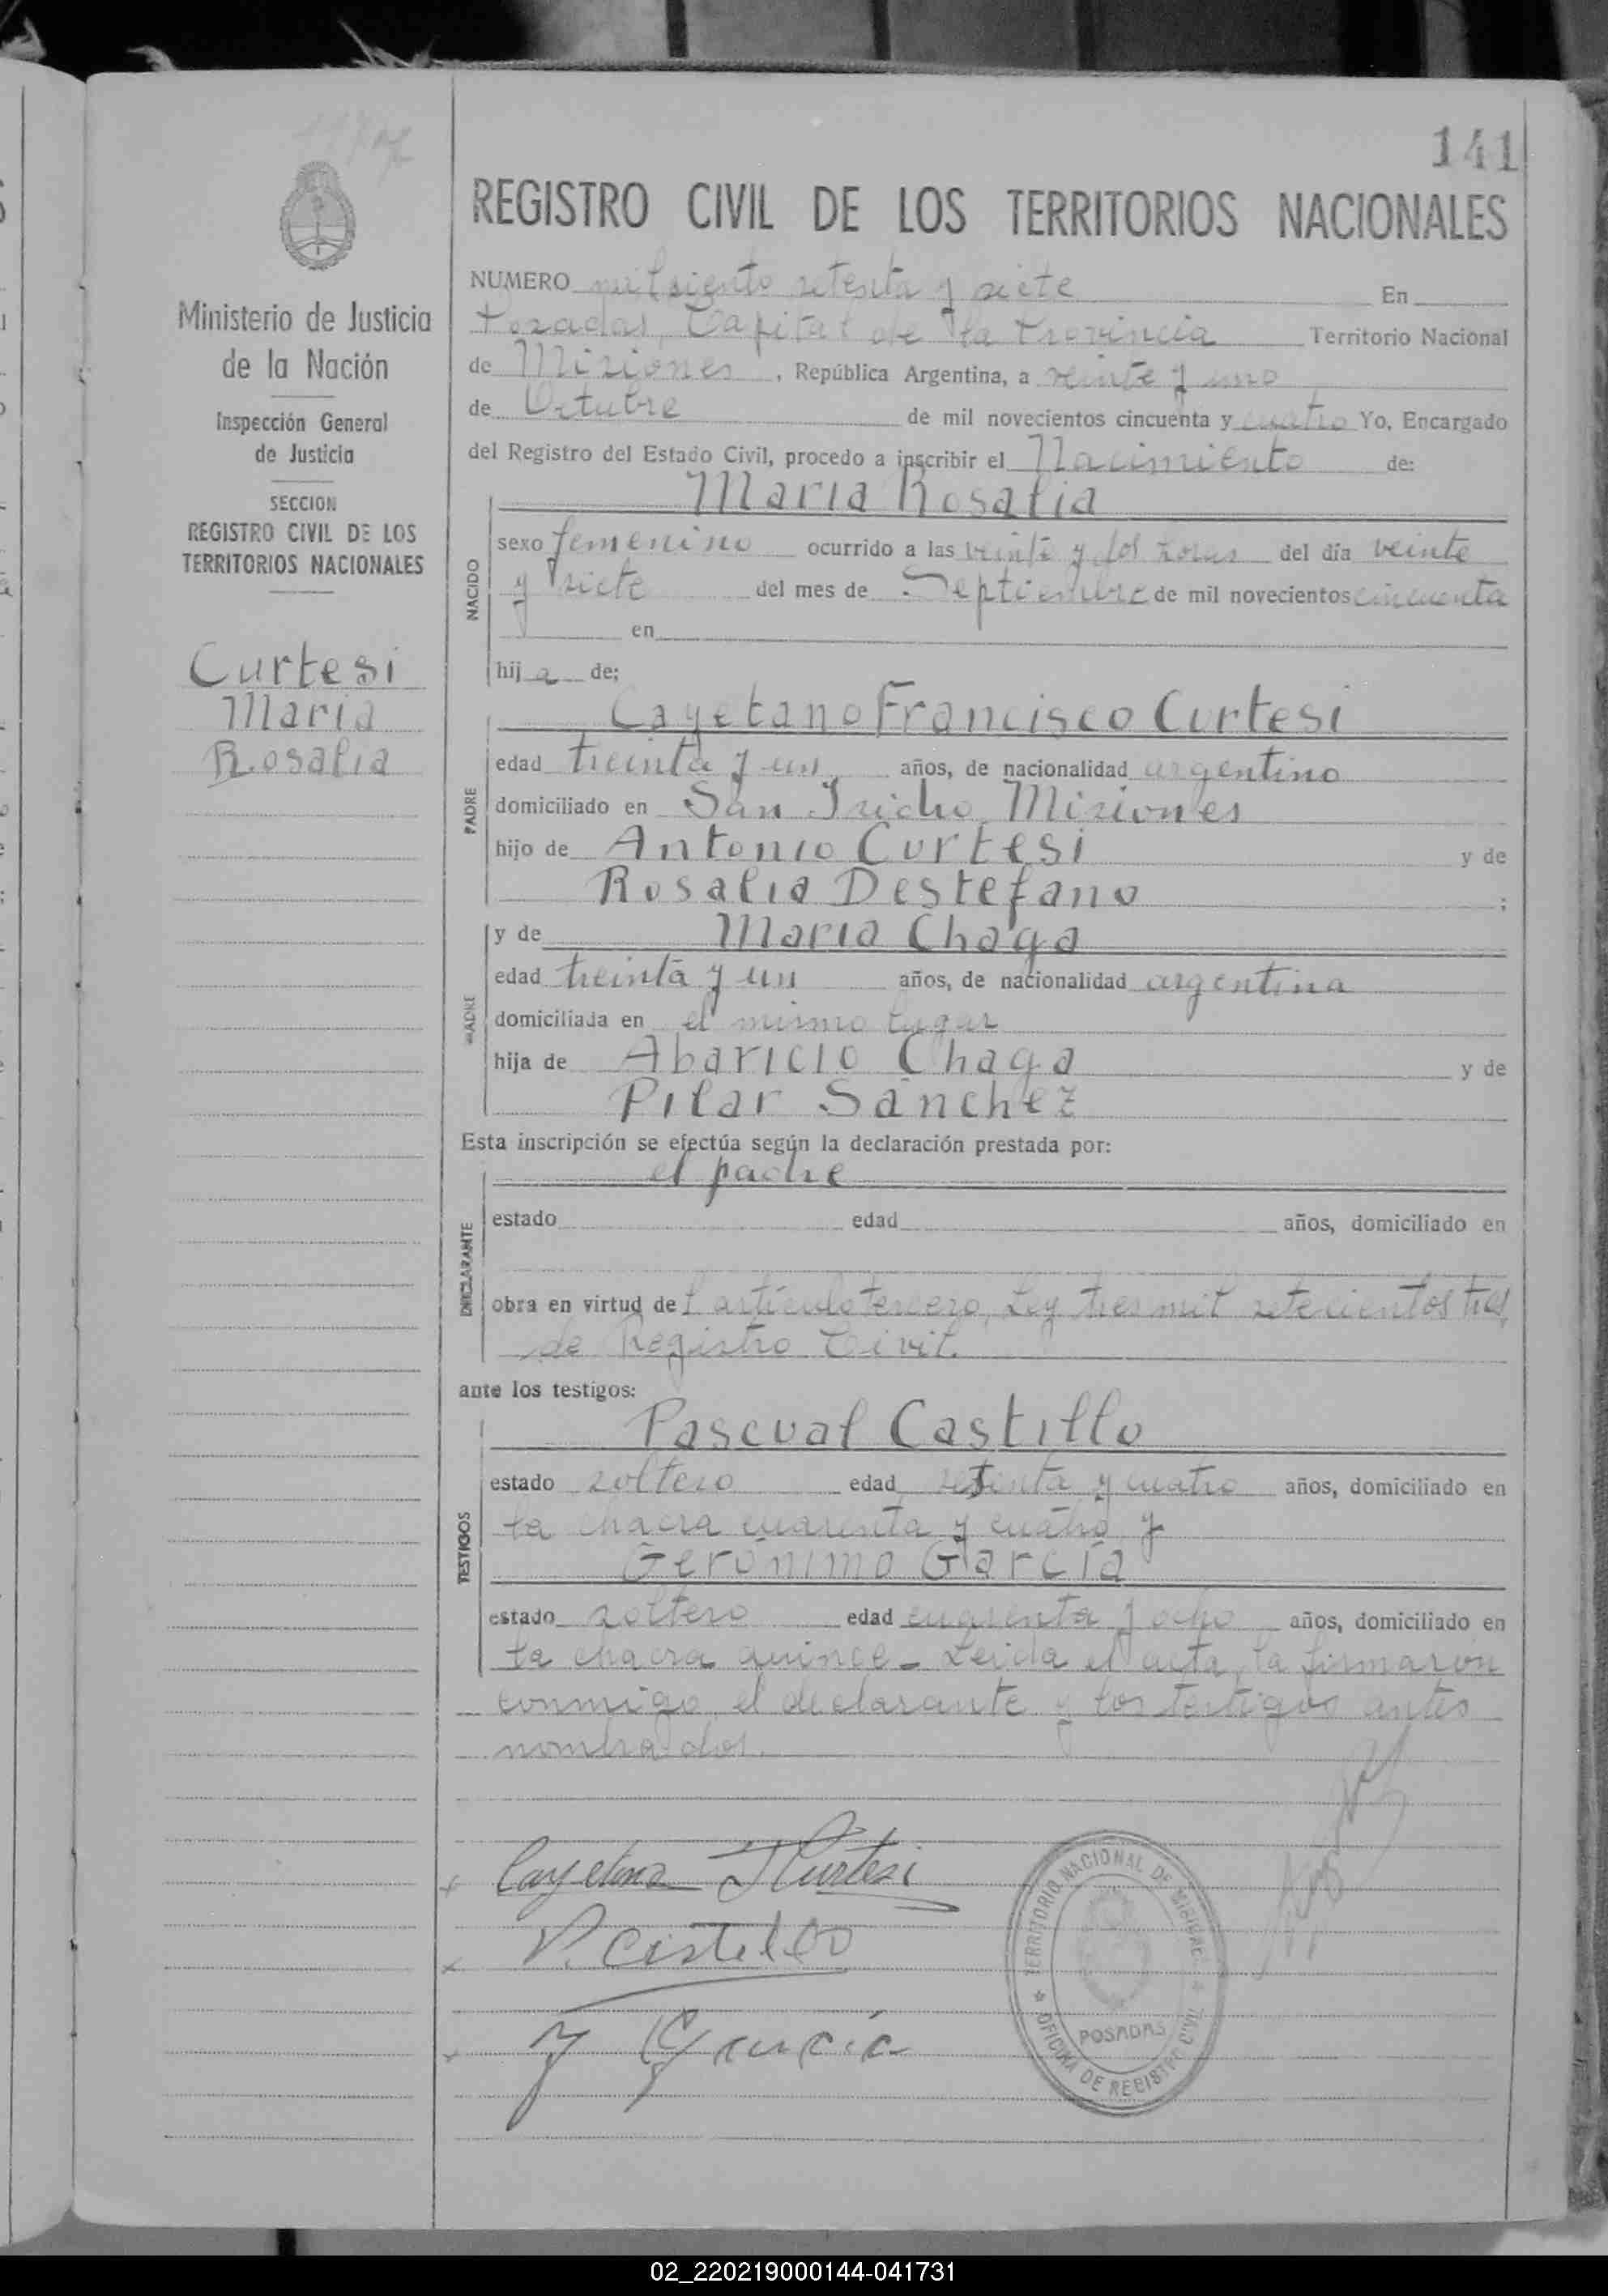 141
REGISTRO CIVIL DE LOS TERRITORIOS NACIONALES
Ministerio de Justicia
de la Nación
Inspección General
de Justicia
SECCION
REGISTRO CIVIL DE LOS
TERRITORIOS NACIONALES
Curtesi
Maria
Rosalia
NUMERO mil ciento setenta y siete En
Posadas, Capital de la Provincia Territorio Nacional
de Misiones, República Argentina, a veinte y uno
de Octubre de mil novecientos cincuenta y cuatro Yo, Encargado
del Registro del Estado Civil, procedo a inscribir el Nacimiento de:
Maria Rosalia
NACIDO
sexo femenino ocurrido a las veinte y dos horas del día veinte
y siete del mes de Septiembre de mil novecientos cincuenta
en
hija de;
Cayetano Francisco Curtesi
PADRE
edad treinta y un años, de nacionalidad argentino
domiciliado en San Isidro, Misiones
hijo de Antonio Curtesi y de
Rosalia Destefano ;
y de Maria Chaga
MADRE
edad treinta y un años, de nacionalidad argentina
domiciliada en el mismo lugar
hija de Abaricio Chaga y de
Pilar Sánchez
Esta inscripción se efectúa según la declaración prestada por:
el padre
DECLARANTE
estado edad años, domiciliado en
obra en virtud del artículo tercero, Ley tres mil setecientos tres,
de Registro Civil.
ante los testigos:
Pascual Castillo
TESTIGOS
estado soltero edad setenta y cuatro años, domiciliado en
la chacra cuarenta y cuatro y
Gerónimo García
estado soltero edad cuarenta y ocho años, domiciliado en
la chacra quince - Leida el acta, la firmaron
conmigo, el declarante y los testigos antes
nombrados.
Cayetano F Curtesi
P. Castillo
J Garcia
TERRITORIO NACIONAL DE MISIONES
POSADAS
OFICINA DE REGISTRO CIVIL
02_220219000144-041731